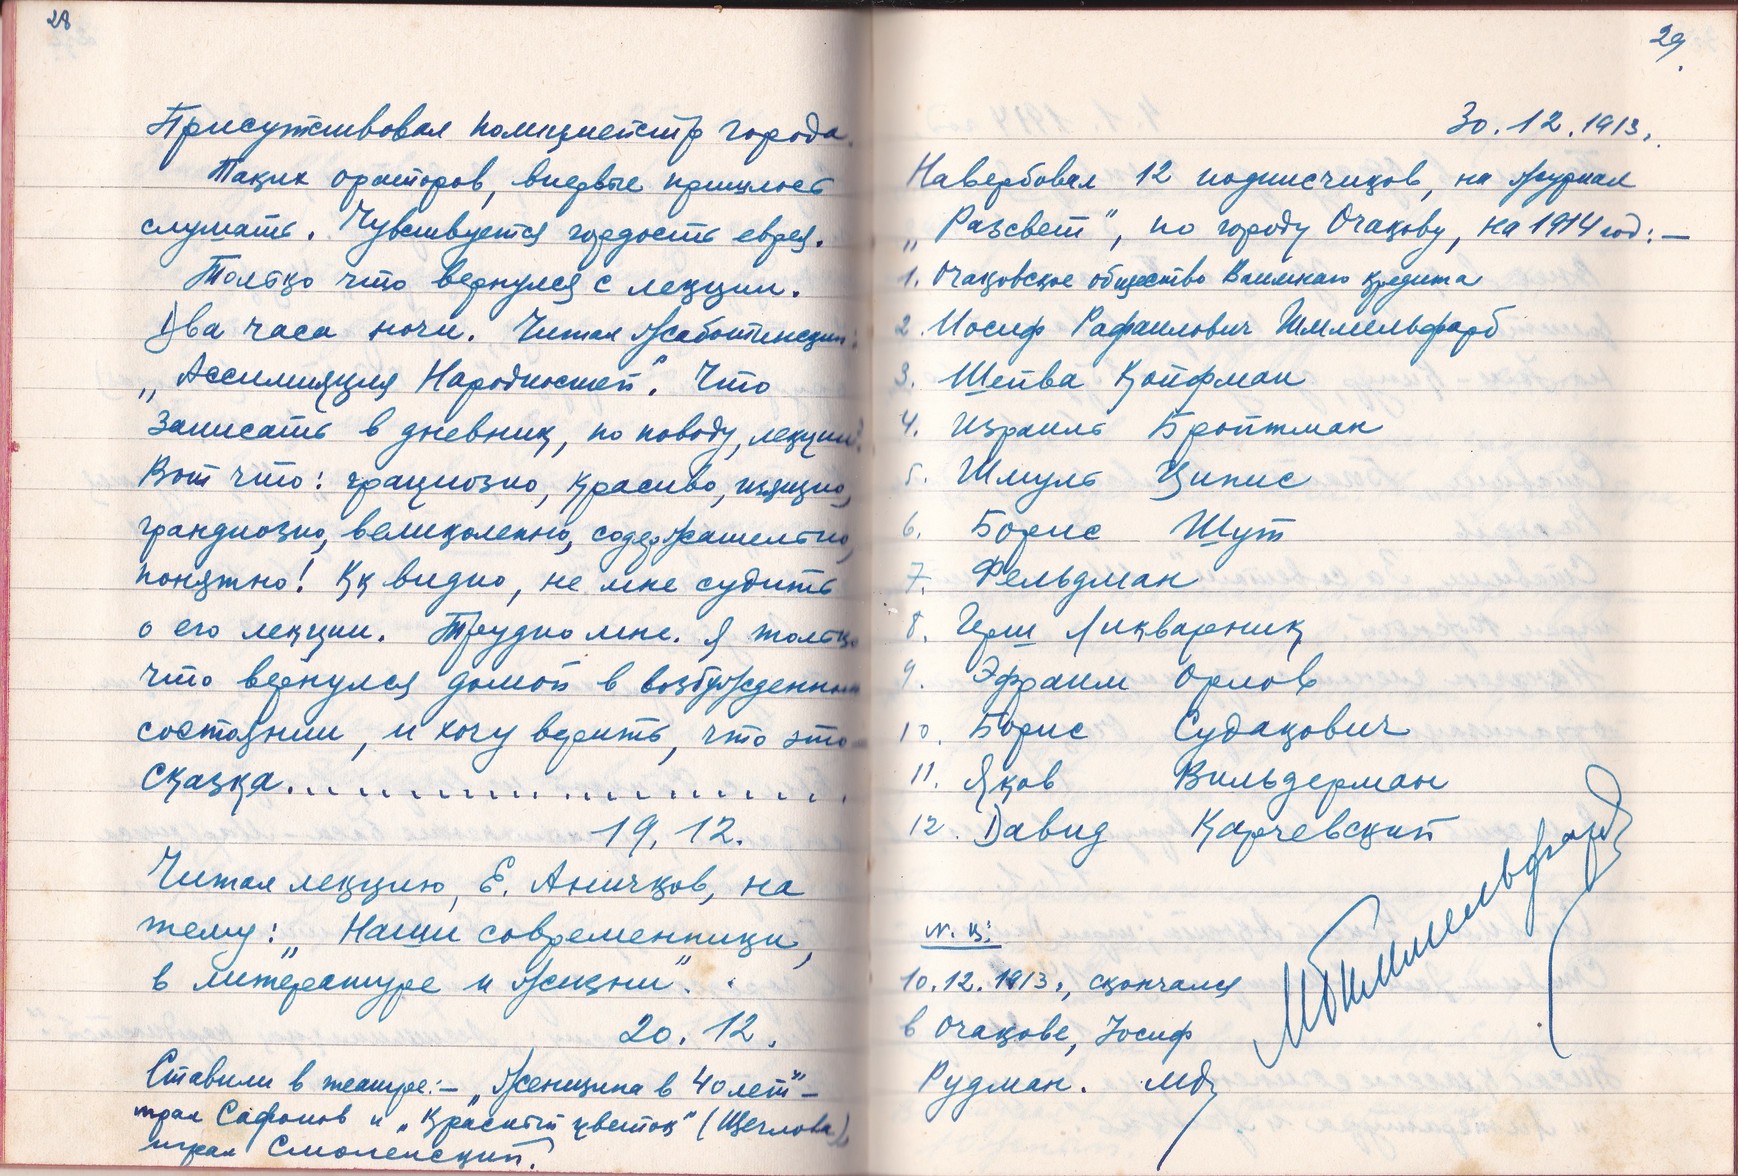 28
Присутствовал полицмейстр города.
Таких ораторов, впервые пришлось
слушать. Чувствуется гордость еврея.
Только что вернулся с лекции.
Два часа ночи. Читал Жаботинский:
„Ассимиляция Народностей". Что
записать в дневник, по поводу, лекции?
Вот что: грациозно, красиво, изящно,
грандиозно, великолепно, содержательно,
понятно! Кк видно, не мне судить
о его лекции. Трудно мне. Я только
что вернулся домой в возбужденном
состоянии, и хочу верить, что это
сказка.....................
19. 12.
Читал лекцию, Е. Аничков, на
тему: „Наши современники,
в литературе и жизни".
20. 12.
Ставили в театре:— „Женщина в 40 лет"—
играл Сафонов и „Красный цветок" (Щеглова),
играл Смоленский.
29.
30. 12. 1913.
Навербовал 12 подписчиков, на журнал
„Разсвет", по городу Очакову, на 1914 год:—
1. Очаковское общество Взаимнаго кредита
2. Иосиф Рафаилович Шммельфарб
3. Шейва Койфман
4. Израиль Бройтман
5. Шмуль Ципис
6. Борис Шут
7. Фельдман
8. Герш Ликварник
9. Эфраим Орлов
10. Борис Судакович
11. Яков Вильдерман
12. Давид Карчевский
10.12.1913., скончался
в Очакове, Іосиф
Рудман.